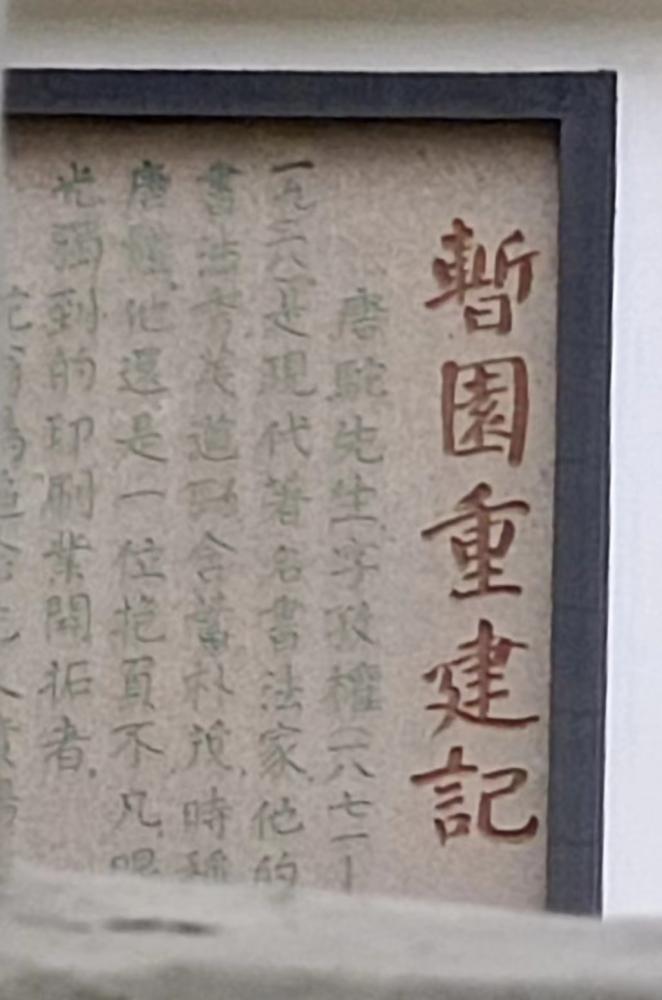 暫園重建記
唐駝先生字孜權(一八七一—
一九三八)是現代著名書法家,他的
書法秀茂遒 含蓄朴茂,時稱
唐體,他還是一位抱負不凡,眼
光獨到的印刷業開拓者,